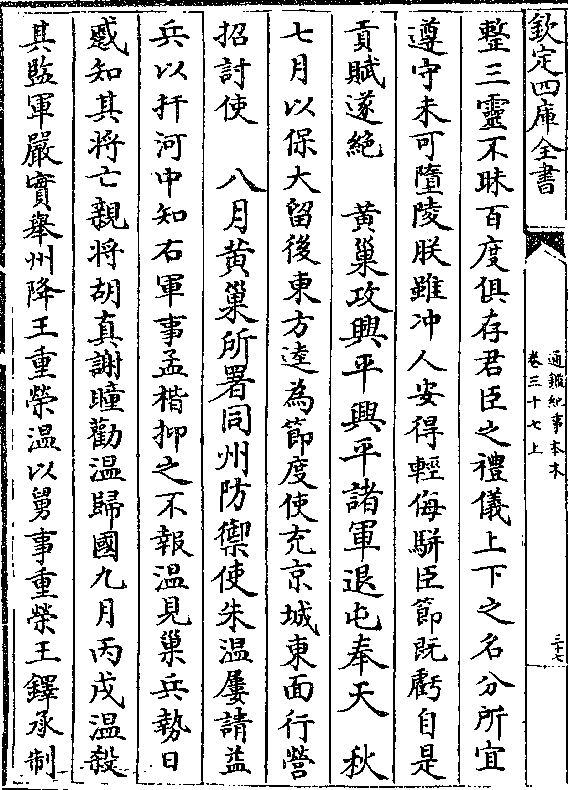 欽定四庫全書
通鑑紀事本末
卷三十七上
三十七
整三靈不昧百度俱存君臣之禮儀上下之名分所宜
遵守未可墮陵朕雖冲人安得輕侮駢臣節既虧自是
貢賦遂絶　黄巢攻興平興平諸軍退屯奉天　秋
七月以保大留後東方逵為節度使充京城東面行營
招討使　八月黄巢所署同州防禦使朱温屢請益
兵以扞河中知右軍事孟楷抑之不報温見巢兵勢日
蹙知其将亡親将胡真謝瞳勸温歸國九月丙戌温殺
其監軍嚴實舉州降王重榮温以舅事重榮王鐸承制